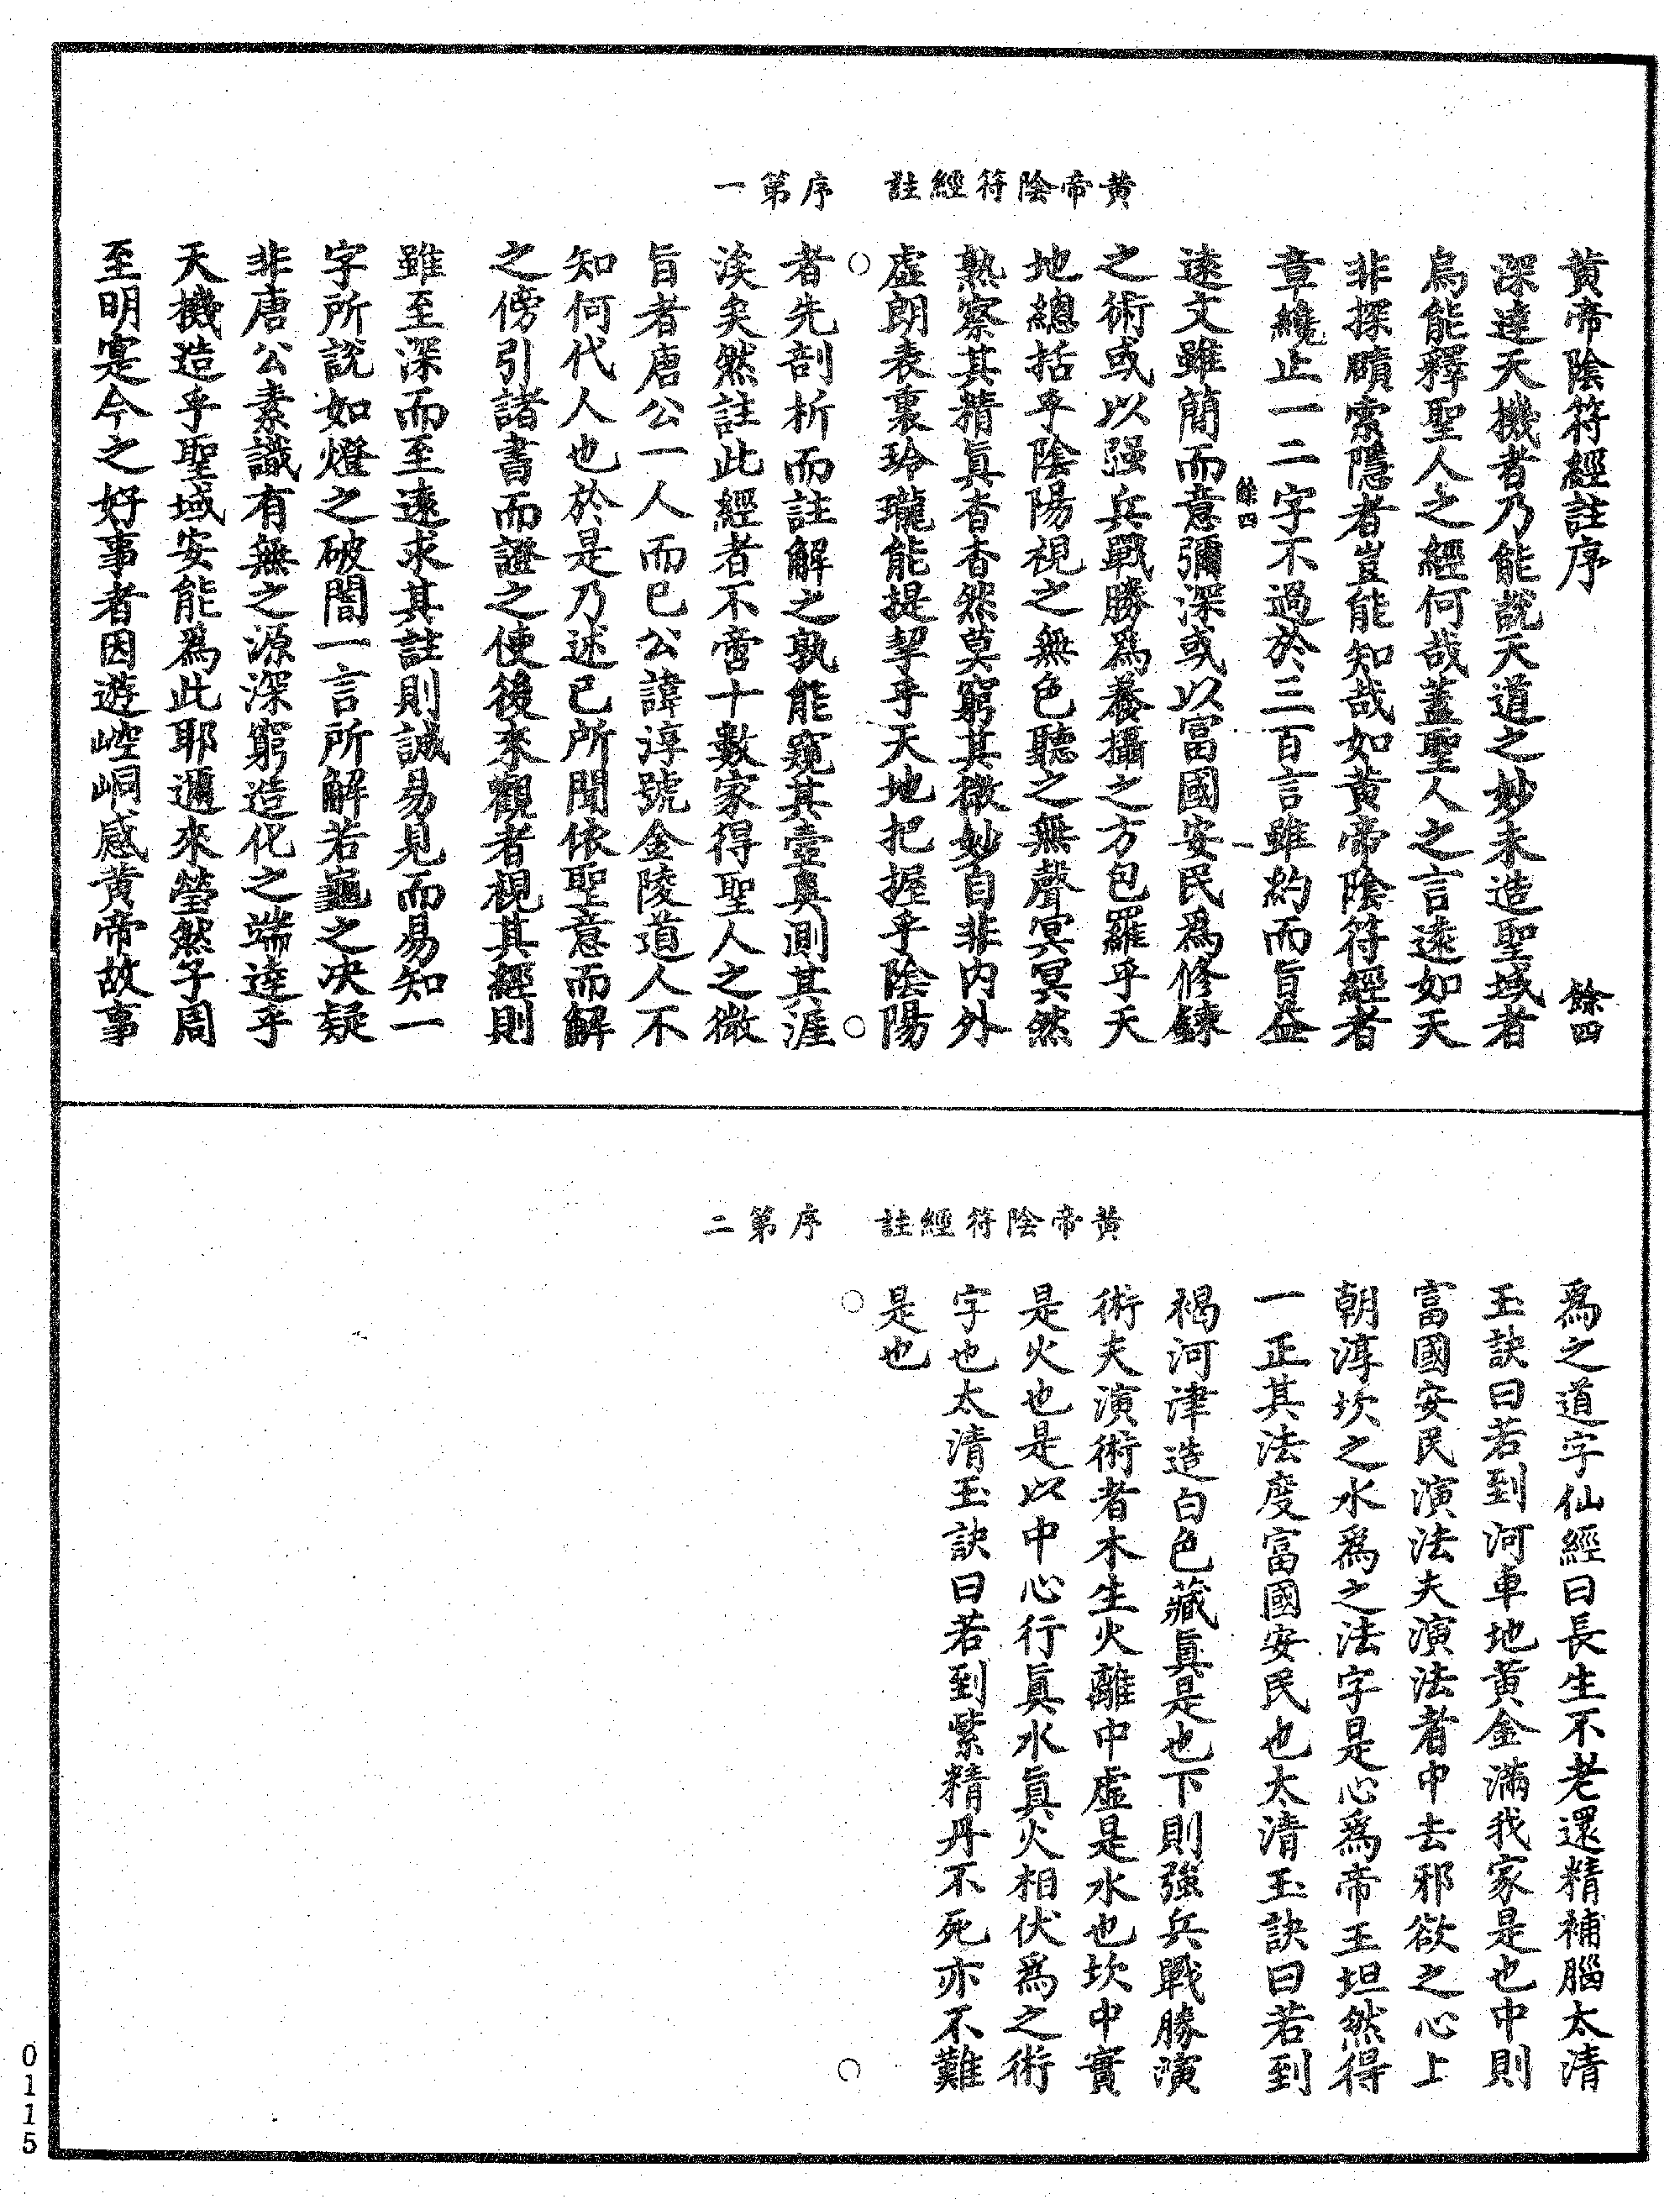 黃帝陰符經註　序第一
黃帝陰符經註序　餘四
深達天機者乃能說天道之妙未造聖域者
烏能釋聖人之經何哉蓋聖人之言遠如天
非探賾索隱者豈能知哉如黃帝陰符經者
章纔止一二字不過於三百言雖約而旨益
餘四　一
遠文雖簡而意彌深或以富國安民爲修鍊
之術或以强兵戰勝爲養攝之方包羅乎天
地總括乎陰陽視之無色聽之無聲冥冥然
熟察其精眞杳杳然莫窮其微妙自非内外
虛朗表裏玲瓏能提挈乎天地把握乎陰陽
者先剖析而註解之孰能窺其壼奥測其涯
涘矣然註此經者不啻十數家得聖人之微
旨者唐公一人而已公諱淳號金陵道人不
知何代人也於是乃述已所聞依聖意而解
之傍引諸書而證之使後來觀者視其經則
雖至深而至遠求其註則誠易見而易知一
字所說如燈之破闇一言所解若龜之决疑
非唐公素識有無之源深窮造化之端達乎
天機造乎聖域安能爲此耶邇來瑩然子周
至明寔今之好事者因遊崆峒感黃帝故事
黃帝陰符經註　序第二
爲之道字仙經曰長生不老還精補腦太清
玉訣曰若到河車地黃金滿我家是也中則
富國安民演法夫演法者中去邪欲之心上
朝淳坎之水爲之法字是心爲帝王坦然得
一正其法度富國安民也太清玉訣曰若到
褐河津造白色藏眞是也下則強兵戰勝演
術夫演術者木生火離中虛是水也坎中實
是火也是以中心行眞水眞火相伏爲之術
字也太清玉訣曰若到紫精丹不死亦不難
是也
0115